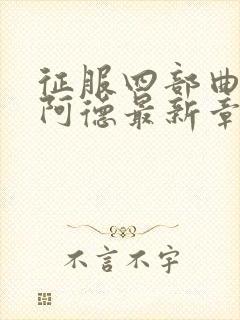 征服四部曲
阿德最新章
不言不字